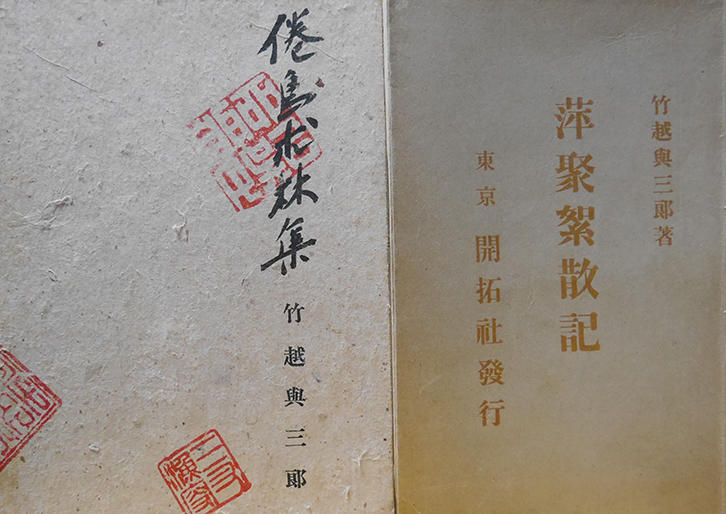 倦鳥求林集
竹越與三郎
竹越與三郎著
萍聚絮散記
東京 開拓社發行